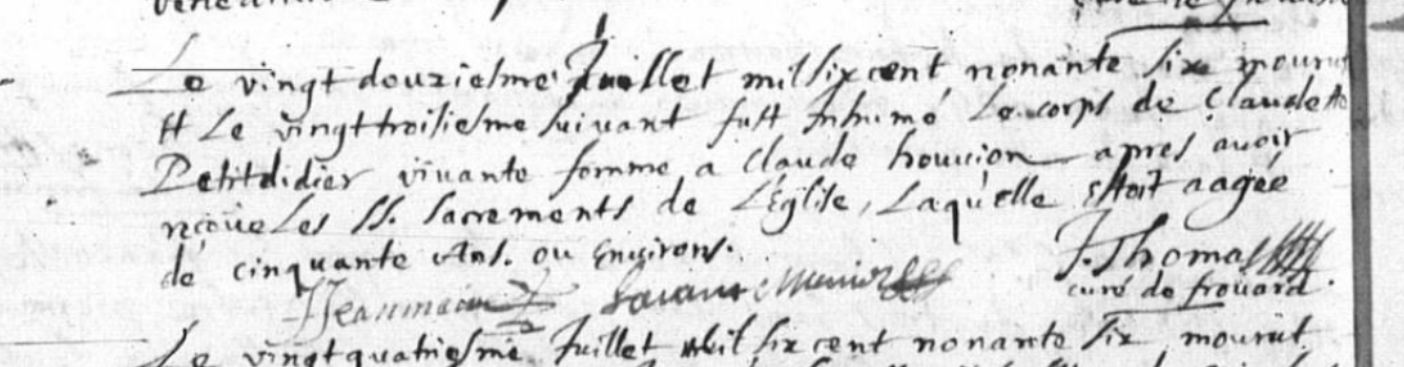 Le vingt deuziesme Juillet mil six cent nonante six mourut
et Le vingt troisiesme suivant fust Inhumé Le corps de Claudette
Petitdidier vivante femme a Claude houuion apres avoir
reçeue Les SS. Sacrements de L'Eglise, Laquelle Estoit aagée
de cinquante Ans. ou Environs.
J. Thomas
curé de frouard.
Le vingt quatriesme Juillet Mil six cent nonante six mourut